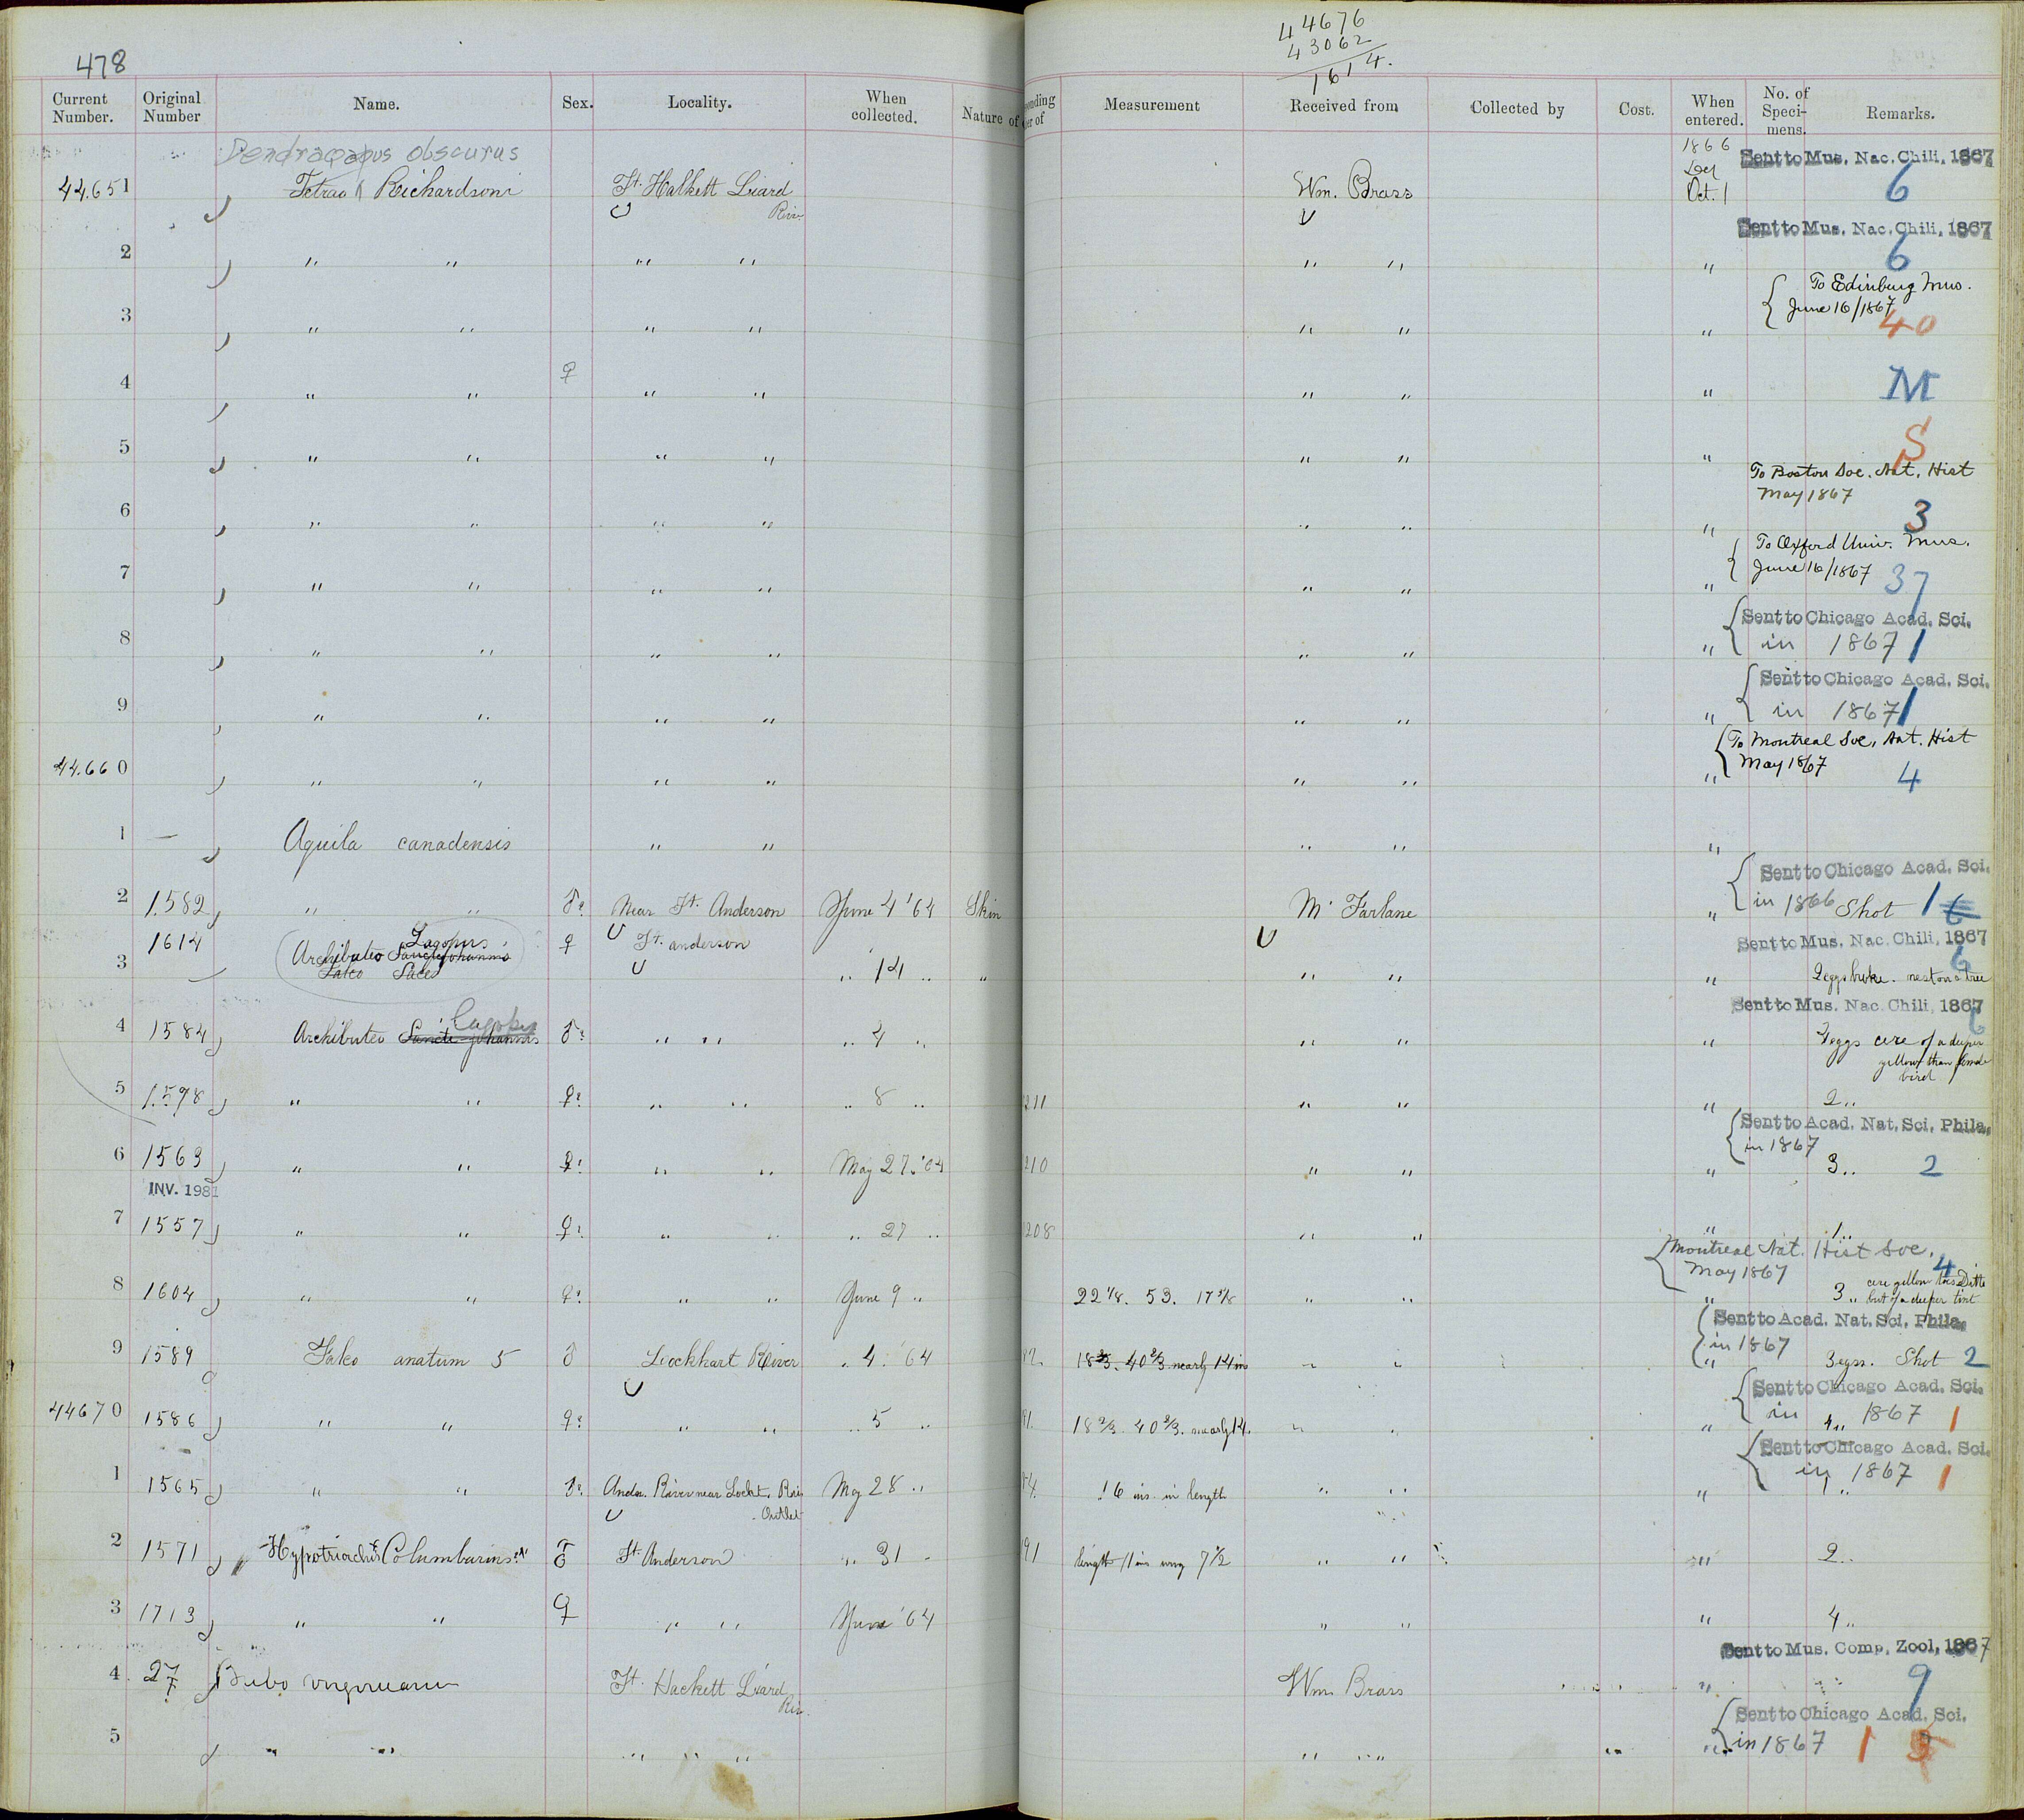 478
44676
43062
1614.
Current Number. Original Number Name. Sex. Locality. When collected. Nature of
Measurement Received from Collected by Cost. When entered. No. of Speci-mens. Remarks.
Dendragapus obscurus
44.651 Tetrao Richardsoni Ft. Halkett Liard Riv. Wm. Brass 1866 Oct. 1 Sent to Mus. Nac. Chili, 1867 6
2 " " " " " " " Sent to Mus. Nac. Chili, 1867 6
3 " " " " " " " To Edinburg Mus. June 16/1867 40
4 " " ♀ " " " " " M
5 " " " " " " " S
6 " " " " " " " To Boston Soc. Nat. Hist May 1867 3
7 " " " " " " " To Oxford Univ. Mus. June 16/1867 37
8 " " " " " " " Sent to Chicago Acad. Sci. in 1867 1
9 " " " " " " " Sent to Chicago Acad. Sci. in 1867 1
44.660 " " " " " " " To Montreal Soc. Nat. Hist May 1867 4
1 — Aquila canadensis " " " " "
2 1582 " " ♂? Near Ft. Anderson June 4 '64 Skin Mc Farlane " Sent to Chicago Acad. Sci. in 1866 Shot 1 6
3 1614 Archibuteo Lagopus Sanctijohannis Falco Sacer ♀ Ft. Anderson " 14 " " " " " Sent to Mus. Nac. Chili, 1867 6 2 eggs broke. nest on a tree
4 1584 Archibuteo Sancti-johannis Lagopus ♂? " " " 4 " " " " Sent to Mus. Nac. Chili, 1867 6 eggs cere of a deeper yellow than female bird
5 1578 " " ♀? " " " 8 " 211 " " " 2 "
6 1563 " " ♀? " " May 27. '64 210 " " " Sent to Acad. Nat. Sci. Phila. in 1867 3 " 2
INV. 1981
7 1557 " " ♀? " " " 27 " 208 " " " 1 "
8 1604 " " ♀? " " June 9 " 22 1/8. 53. 17 5/8 " " " Montreal Nat. Hist Soc. May 1867 4 3 " cere yellow toes Ditto but of a deeper tint
9 1589 Falco anatum 5 ♂ Lockhart River " 4. '64 nearly 14 in " " " Sent to Acad. Nat. Sci. Phila. in 1867 3 eggs. Shot 2
44670 1586 " " ♀? " " " 5 " 18 2/3. 40 2/3. nearly 14. " " " Sent to Chicago Acad. Sci. in 1867 4 " 1
1 1565 " " ♂? Ander. River near Lockt. Riv. Outlet May 28 " 16 ins in length " " " Sent to Chicago Acad. Sci. in 1867 1 " 1
2 1571 Hypotriorchis Columbarius ♂ Ft. Anderson " 31 " 91 length 11 ins wing 7 1/2 " " " 2 "
3 1713 " " ♀ " " June '64 " " " 4 "
4 27 Bubo Virginianus Ft. Hackett Liard Riv. Wm Brass " Sent to Mus. Comp. Zool, 1867 9
5 " " " " " " " " Sent to Chicago Acad. Sci. in 1867 1